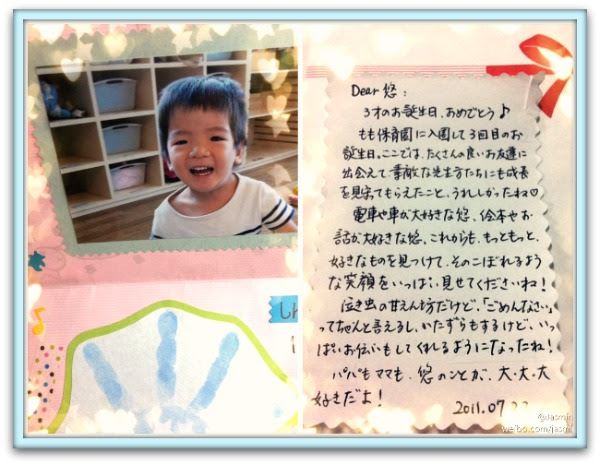 Dear 悠：
3才のお誕生日、おめでとう♪
もも保育園に入園して3回目のお
誕生日。ここでは、たくさんの良いお友達に
出会えて、素敵な先生方たちにも成長
を見守ってもらえたこと、うれしかったね♡
電車や車が大好きな悠、絵本やお
話が大好きな悠、これからも、もっともっと、
好きなものを見つけて、そのこぼれるよう
な笑顔をいっぱい見せてくださいね！
泣き虫の甘えん坊だけど、「ごめんなさい」
ってちゃんと言えるし、いたずらもするけど、いっ
ぱいお伝いもしてくれるようになったね！
パパもママも、悠のことが、大・大・大
好きだよ！
2011.07
@Jasmin
weibo.com/jasmi